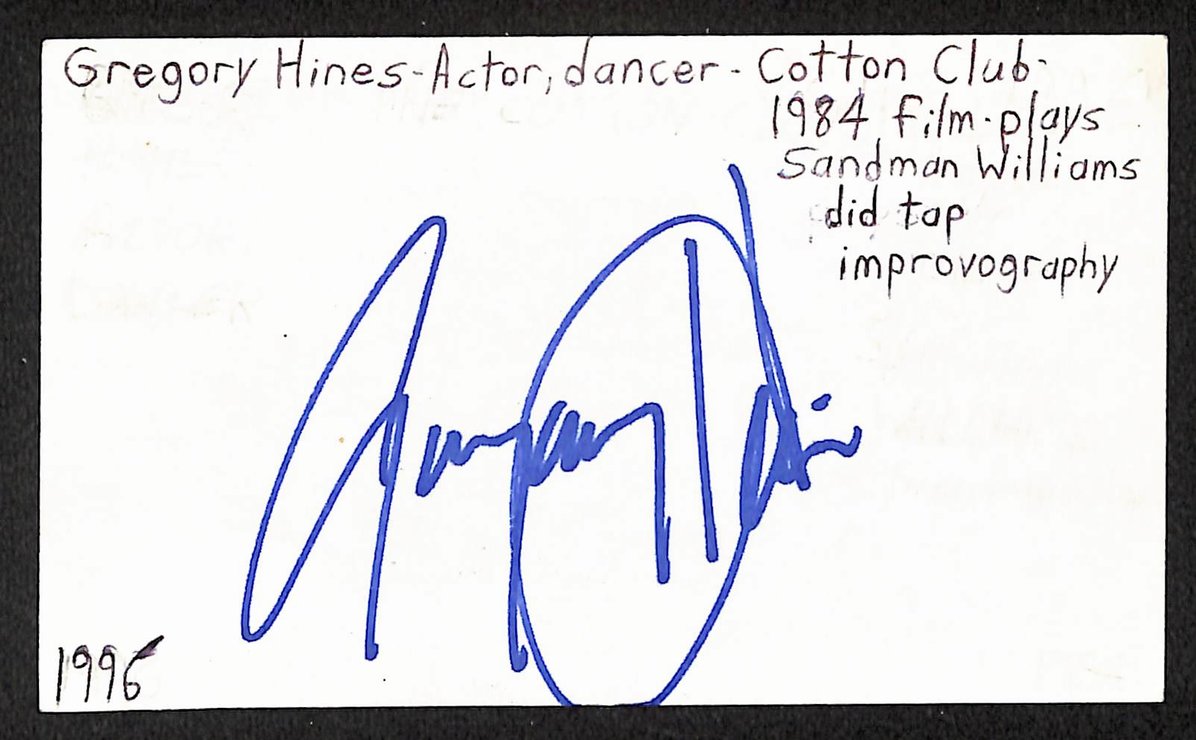 Gregory Hines-Actor, dancer- Cotton Club-
1984 film-plays
Sandman Williams
did tap
improvography
Gregory Hines
1996